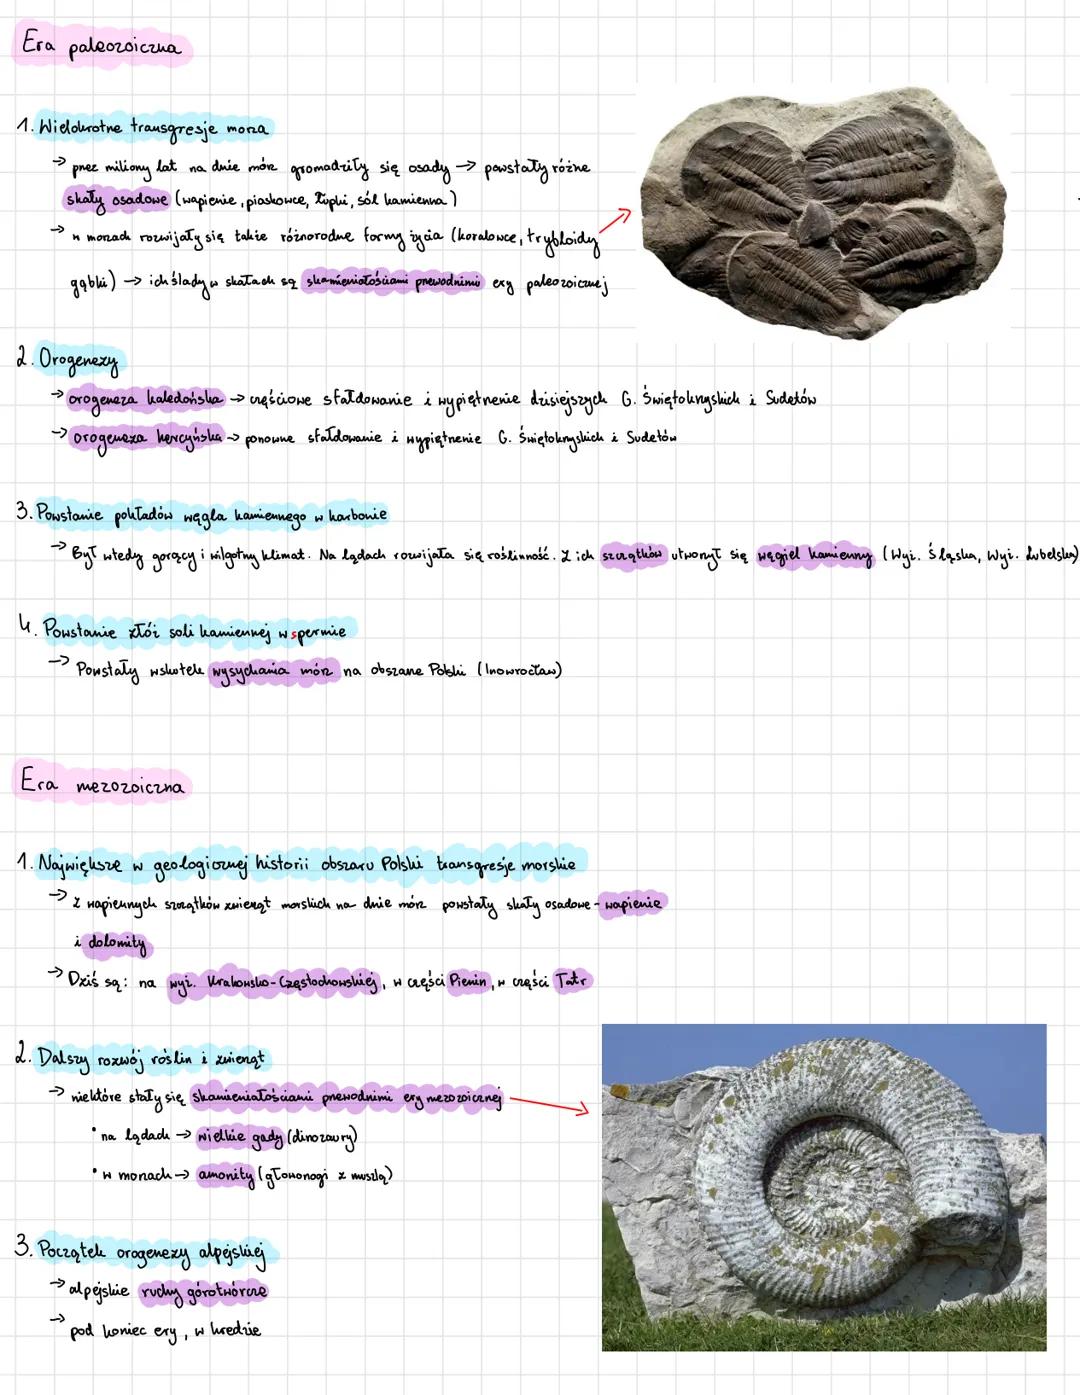 Era paleozoiczna
1. Wielokrotne transgresje morza
→ przez miliony lat na dnie mórz gromadziły się osady → powstały różne
skały osadowe (wapienie, piaskowce, łupki, sól kamienna)
→ w morzach rozwijały się także różnorodne formy życia (koralowce, tryboloidy
gąbki) → ich ślady w skałach są skamieniałościami przewodnimi ery paleozoicznej
2. Orogenezy
→ orogeneza kaledońska → częściowe sfałdowanie i wypiętrzenie dzisiejszych G. Świętokrzyskich i Sudetów
→ orogeneza hercyńska → ponowne sfałdowanie i wypiętrzenie G. Świętokrzyskich i Sudetów
3. Powstanie pokładów węgla kamiennego w karbonie
→ Był wtedy gorący i wilgotny klimat. Na lądach rozwijała się roślinność. Z ich szczątków utworzył się węgiel kamienny (Wyż. Śląska, Wyż. Lubelska)
4. Powstanie złóż soli kamiennej w spermie
→ Powstały wskutek wysychania mórz na obszarze Polski (Inowrocław)
Era mezozoiczna
1. Największe w geologicznej historii obszaru Polski transgresje morskie
→ z wapiennych szczątków zwierząt morskich na dnie mórz powstały skały osadowe - wapienie
i dolomity
→ Dziś są: na wyż. Krakowsko-Częstochowskiej, w części Pienin, w części Tatr
2. Dalszy rozwój roślin i zwierząt
→ niektóre stały się skamieniałościami przewodnimi ery mezozoicznej
• na lądach → wielkie gady (dinozaury)
• w morzach → amonity (głowonogi z muszlą)
3. Początek orogenezy alpejskiej
→ alpejskie ruchy górotwórcze
→ pod koniec ery, w kredzie